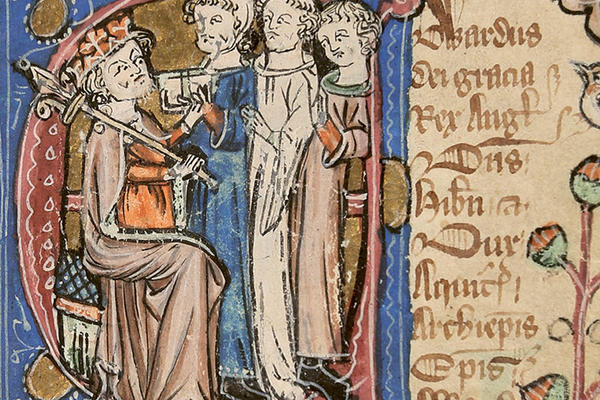 Edwardus
dei gracia
Rex Angl
Dns
Hibn ca
Dux
Aquit
Archiepis
Epis